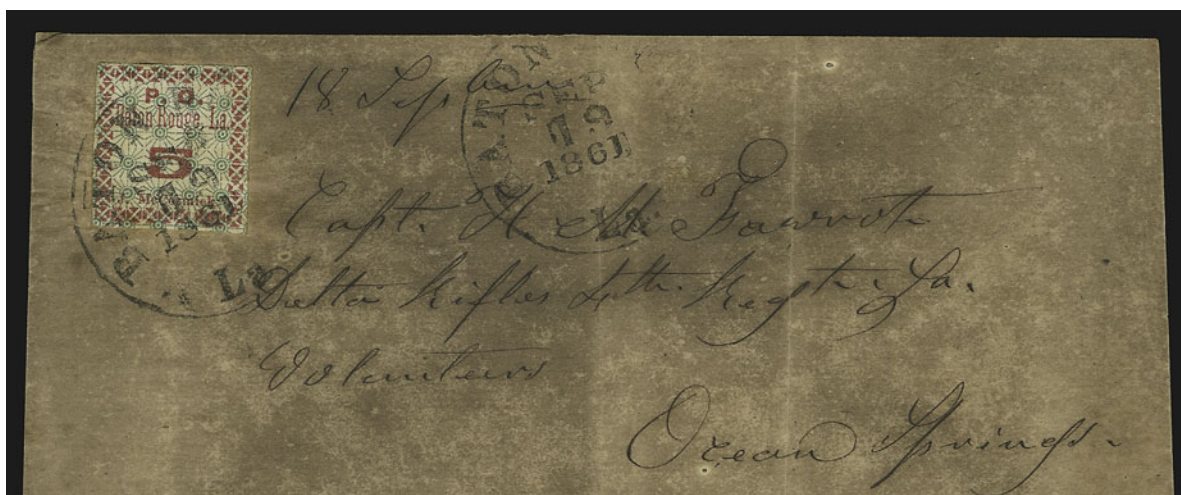 P. O.
Baton Rouge, La.
5
J. McCormick
BATON
SEP
1861
La.
18 Sep
BATON
SEP
19
1861
La.
Capt. H. M. Favrot
Delta Rifles 4th. Regt. La.
Volunteers
Ocean Springs.